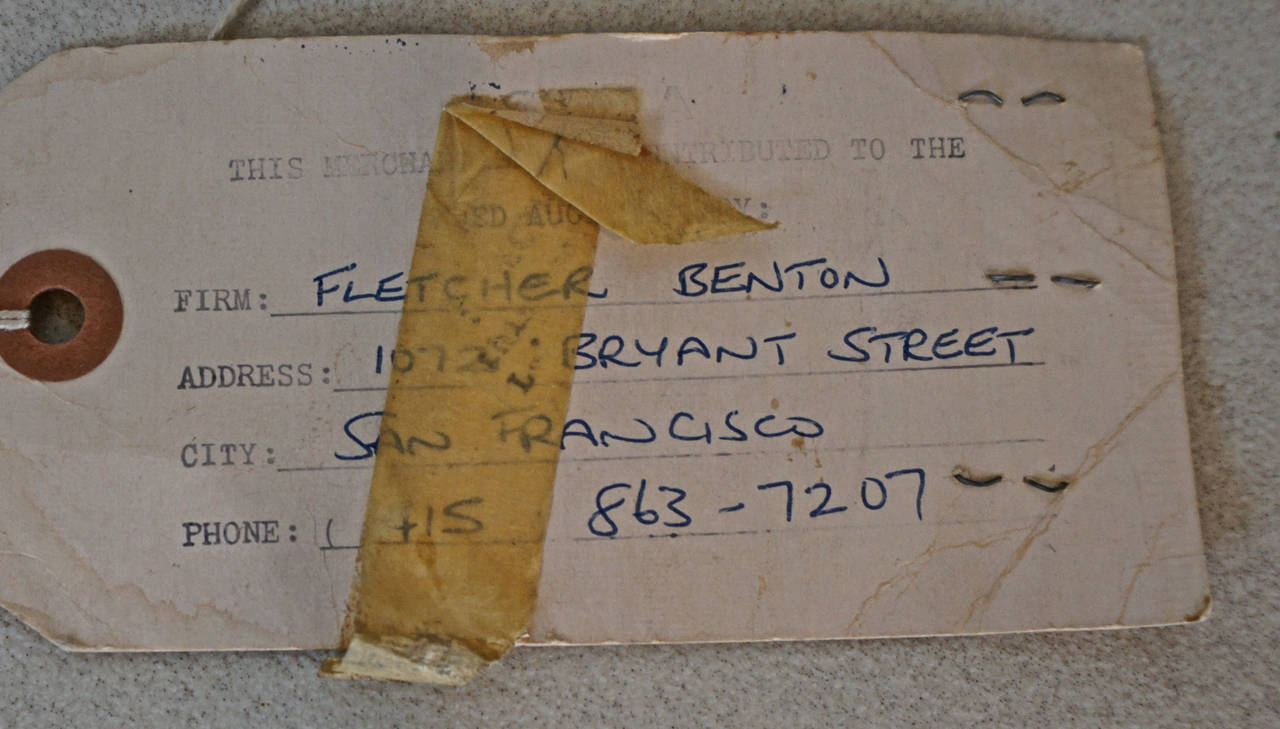 THIS MERCHA NTRIBUTED TO THE
ED AUC BY:
FIRM: FLETCHER BENTON
ADDRESS: 1072 BRYANT STREET
CITY: SAN FRANCISCO
PHONE: ( 415 863-7207